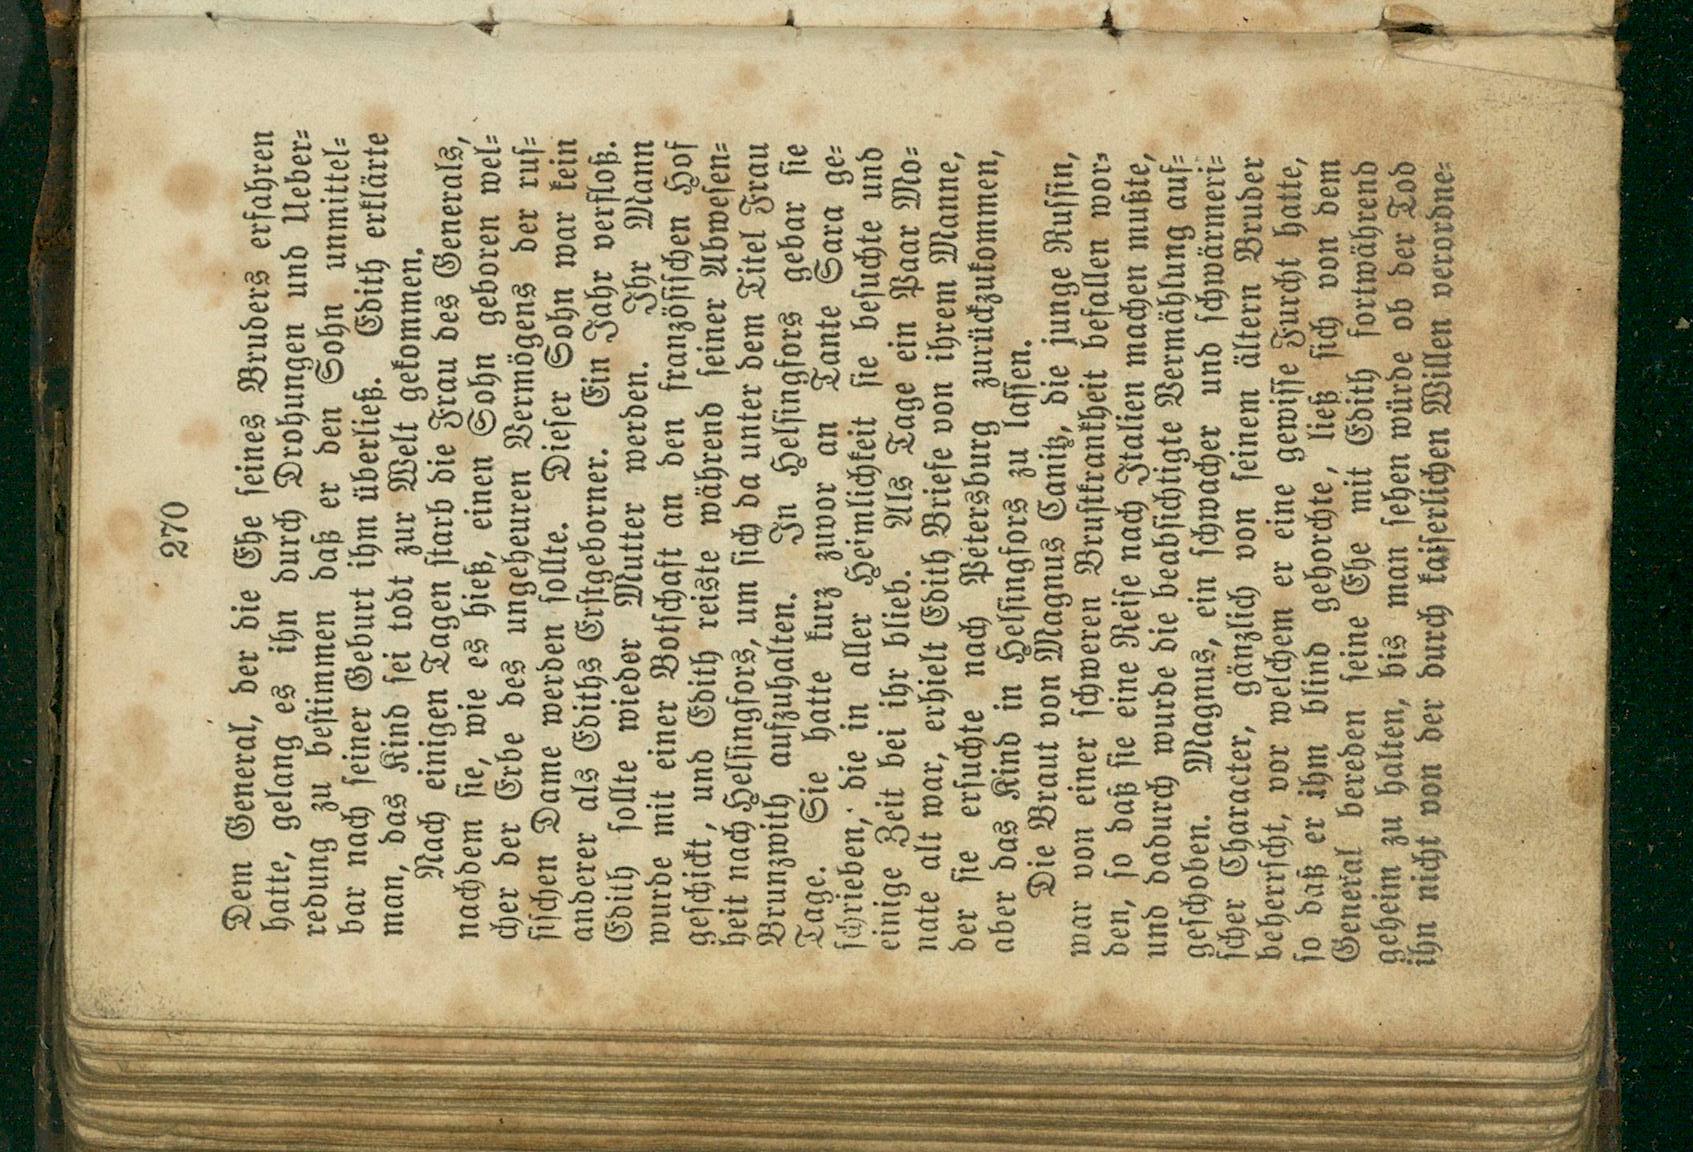 270
Dem General, der die Ehe seines Bruders erfahren
hatte, gelang es ihn durch Drohungen und Ueber=
redung zu bestimmen daß er den Sohn unmittel=
bar nach seiner Geburt ihm überließ. Edith erklärte
man, das Kind sei todt zur Welt gekommen.
Nach einigen Tagen starb die Frau des Generals,
nachdem sie, wie es hieß, einen Sohn geboren wel=
cher der Erbe des ungeheuren Vermögens der rus=
sischen Dame werden sollte. Dieser Sohn war kein
anderer als Ediths Erstgeborner. Ein Jahr verfloß.
Edith sollte wieder Mutter werden. Ihr Mann
wurde mit einer Botschaft an den französischen Hof
geschickt, und Edith reiste während seiner Abwesen=
heit nach Helsingfors, um sich da unter dem Titel Frau
Brunzwith aufzuhalten. In Helsingfors gebar sie
Tage. Sie hatte kurz zuvor an Tante Sara ge=
schrieben, die in aller Heimlichkeit sie besuchte und
einige Zeit bei ihr blieb. Als Tage ein Paar Mo=
nate alt war, erhielt Edith Briefe von ihrem Manne,
der sie ersuchte nach Petersburg zurückzukommen,
aber das Kind in Helsingfors zu lassen.
Die Braut von Magnus Canitz, die junge Russin,
war von einer schweren Brustkrankheit befallen wor=
den, so daß sie eine Reise nach Italien machen mußte,
und dadurch wurde die beabsichtigte Vermählung auf=
geschoben. Magnus, ein schwacher und schwärmeri=
scher Character, gänzlich von seinem ältern Bruder
beherrscht, vor welchem er eine gewisse Furcht hatte,
so daß er ihm blind gehorchte, ließ sich von dem
General bereden seine Ehe mit Edith fortwährend
geheim zu halten, bis man sehen würde ob der Tod
ihn nicht von der durch kaiserlichen Willen verordne=